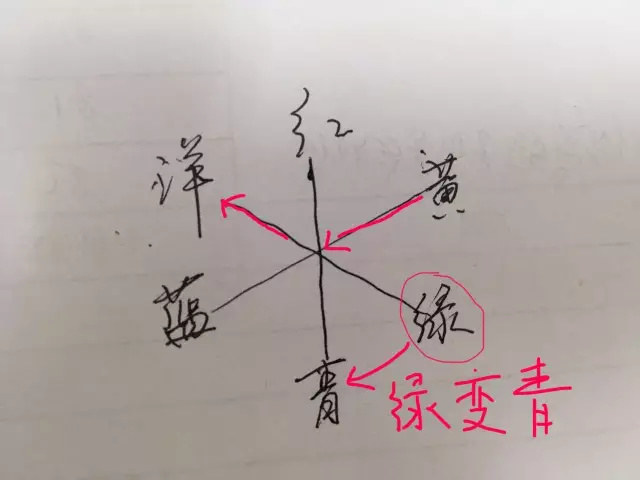 红
洋
黄
蓝
绿
青
绿变青